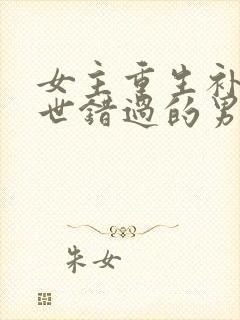 女主重生补
世错过的男
朱女